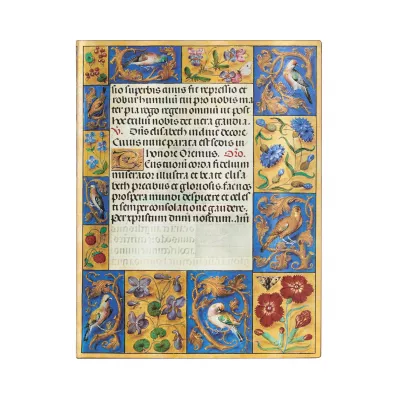 sio superbis fit repressio et
robur humiliū tui pro nobis ma
ter pia rego regem omniū ut post
hoc exiliū nobis det vera gaudia.
V. Dn̄s elisabeth induc decore
Cuius nunc parata est sedis in
honore Oremus. Oro.
Tuorum corda fidelium
miserator illustra et beate elisa
beth precibus et gloriosis, fac nos
prospera mundi despicere et celes
ti semper consolatione gaudere.
per xpistum dnm nostrum. am